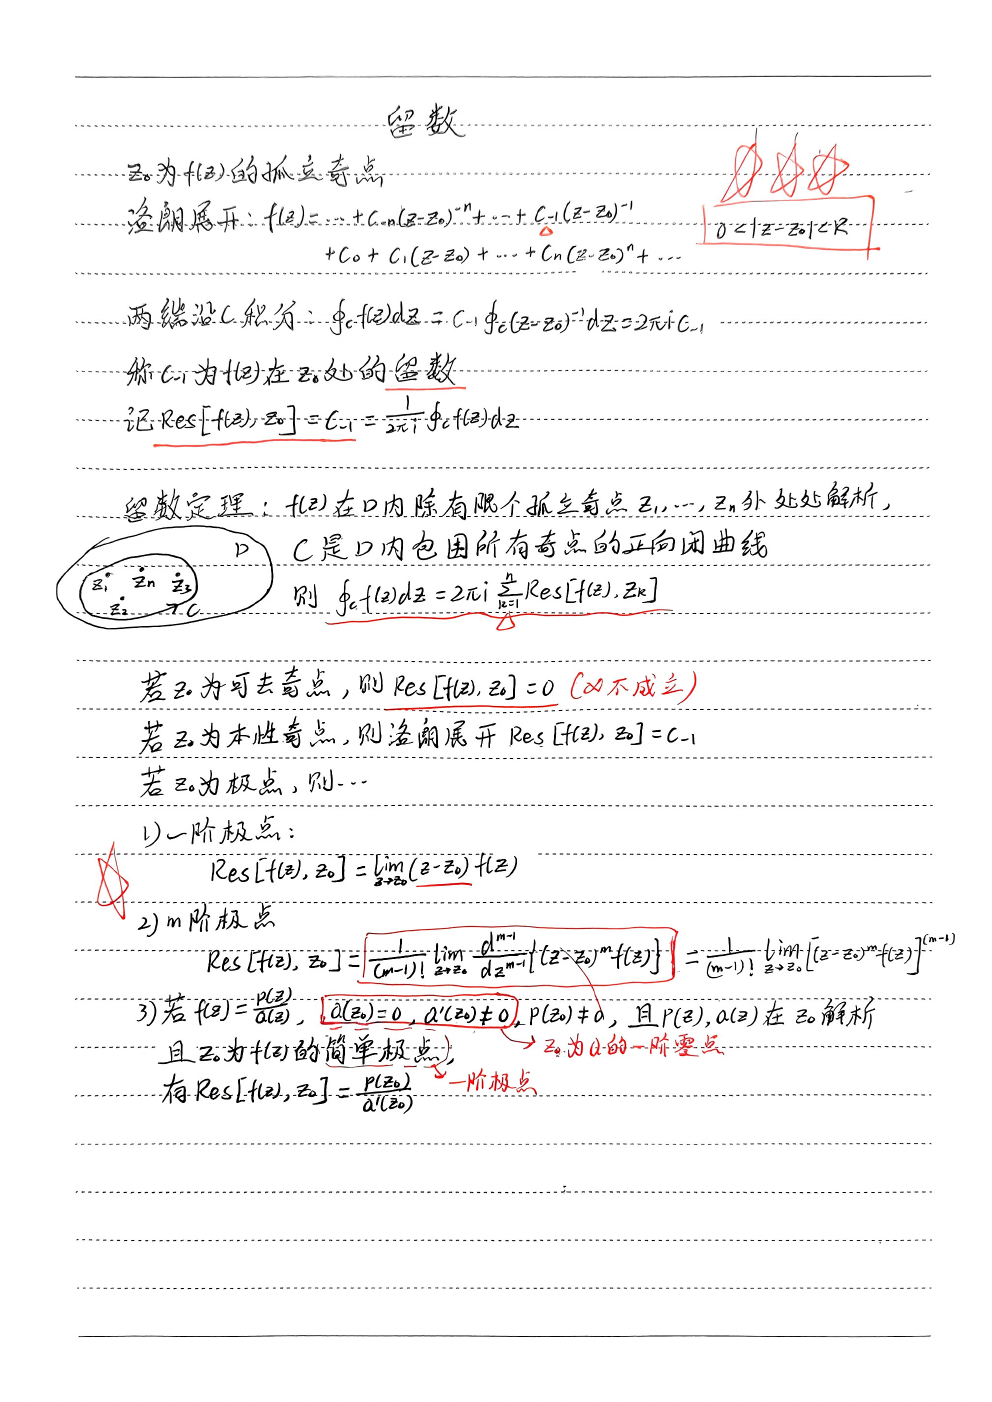 留数
z₀为f(z)的孤立奇点
洛朗展开: f(z)=…+C₋ₙ(z-z₀)⁻ⁿ+…+C₋₁(z-z₀)⁻¹
0<|z-z₀|<R
+C₀+C₁(z-z₀)+…+Cₙ(z-z₀)ⁿ+…
两端沿C积分: ∮c f(z)dz=C₋₁∮c(z-z₀)⁻¹dz=2πiC₋₁
称C₋₁为f(z)在z₀处的留数
记Res[f(z),z₀]=C₋₁=1/(2πi)∮c f(z)dz
留数定理: f(z)在D内除有限个孤立奇点z₁,…,zₙ外处处解析,
C是D内包围所有奇点的正向闭曲线
则 ∮c f(z)dz=2πi∑ₖ₌₁ⁿRes[f(z),zₖ]
D
z₁ zₙ z₃
z₂ C
若z₀为可去奇点,则Res[f(z),z₀]=0 (∞不成立)
若z₀为本性奇点,则洛朗展开 Res[f(z),z₀]=C₋₁
若z₀为极点,则…
1)一阶极点:
Res[f(z),z₀]=lim z→z₀ (z-z₀)f(z)
2)m阶极点
Res[f(z),z₀]=1/(m-1)! lim z→z₀ dᵐ⁻¹/dzᵐ⁻¹{(z-z₀)ᵐf(z)}=1/(m-1)! lim z→z₀ [(z-z₀)ᵐf(z)]⁽ᵐ⁻¹⁾
3)若f(z)=P(z)/Q(z), Q(z₀)=0,Q'(z₀)≠0,P(z₀)≠0,且P(z),Q(z)在z₀解析
z₀为Q的一阶零点
且z₀为f(z)的简单极点,
一阶极点
有Res[f(z),z₀]=P(z₀)/Q'(z₀)